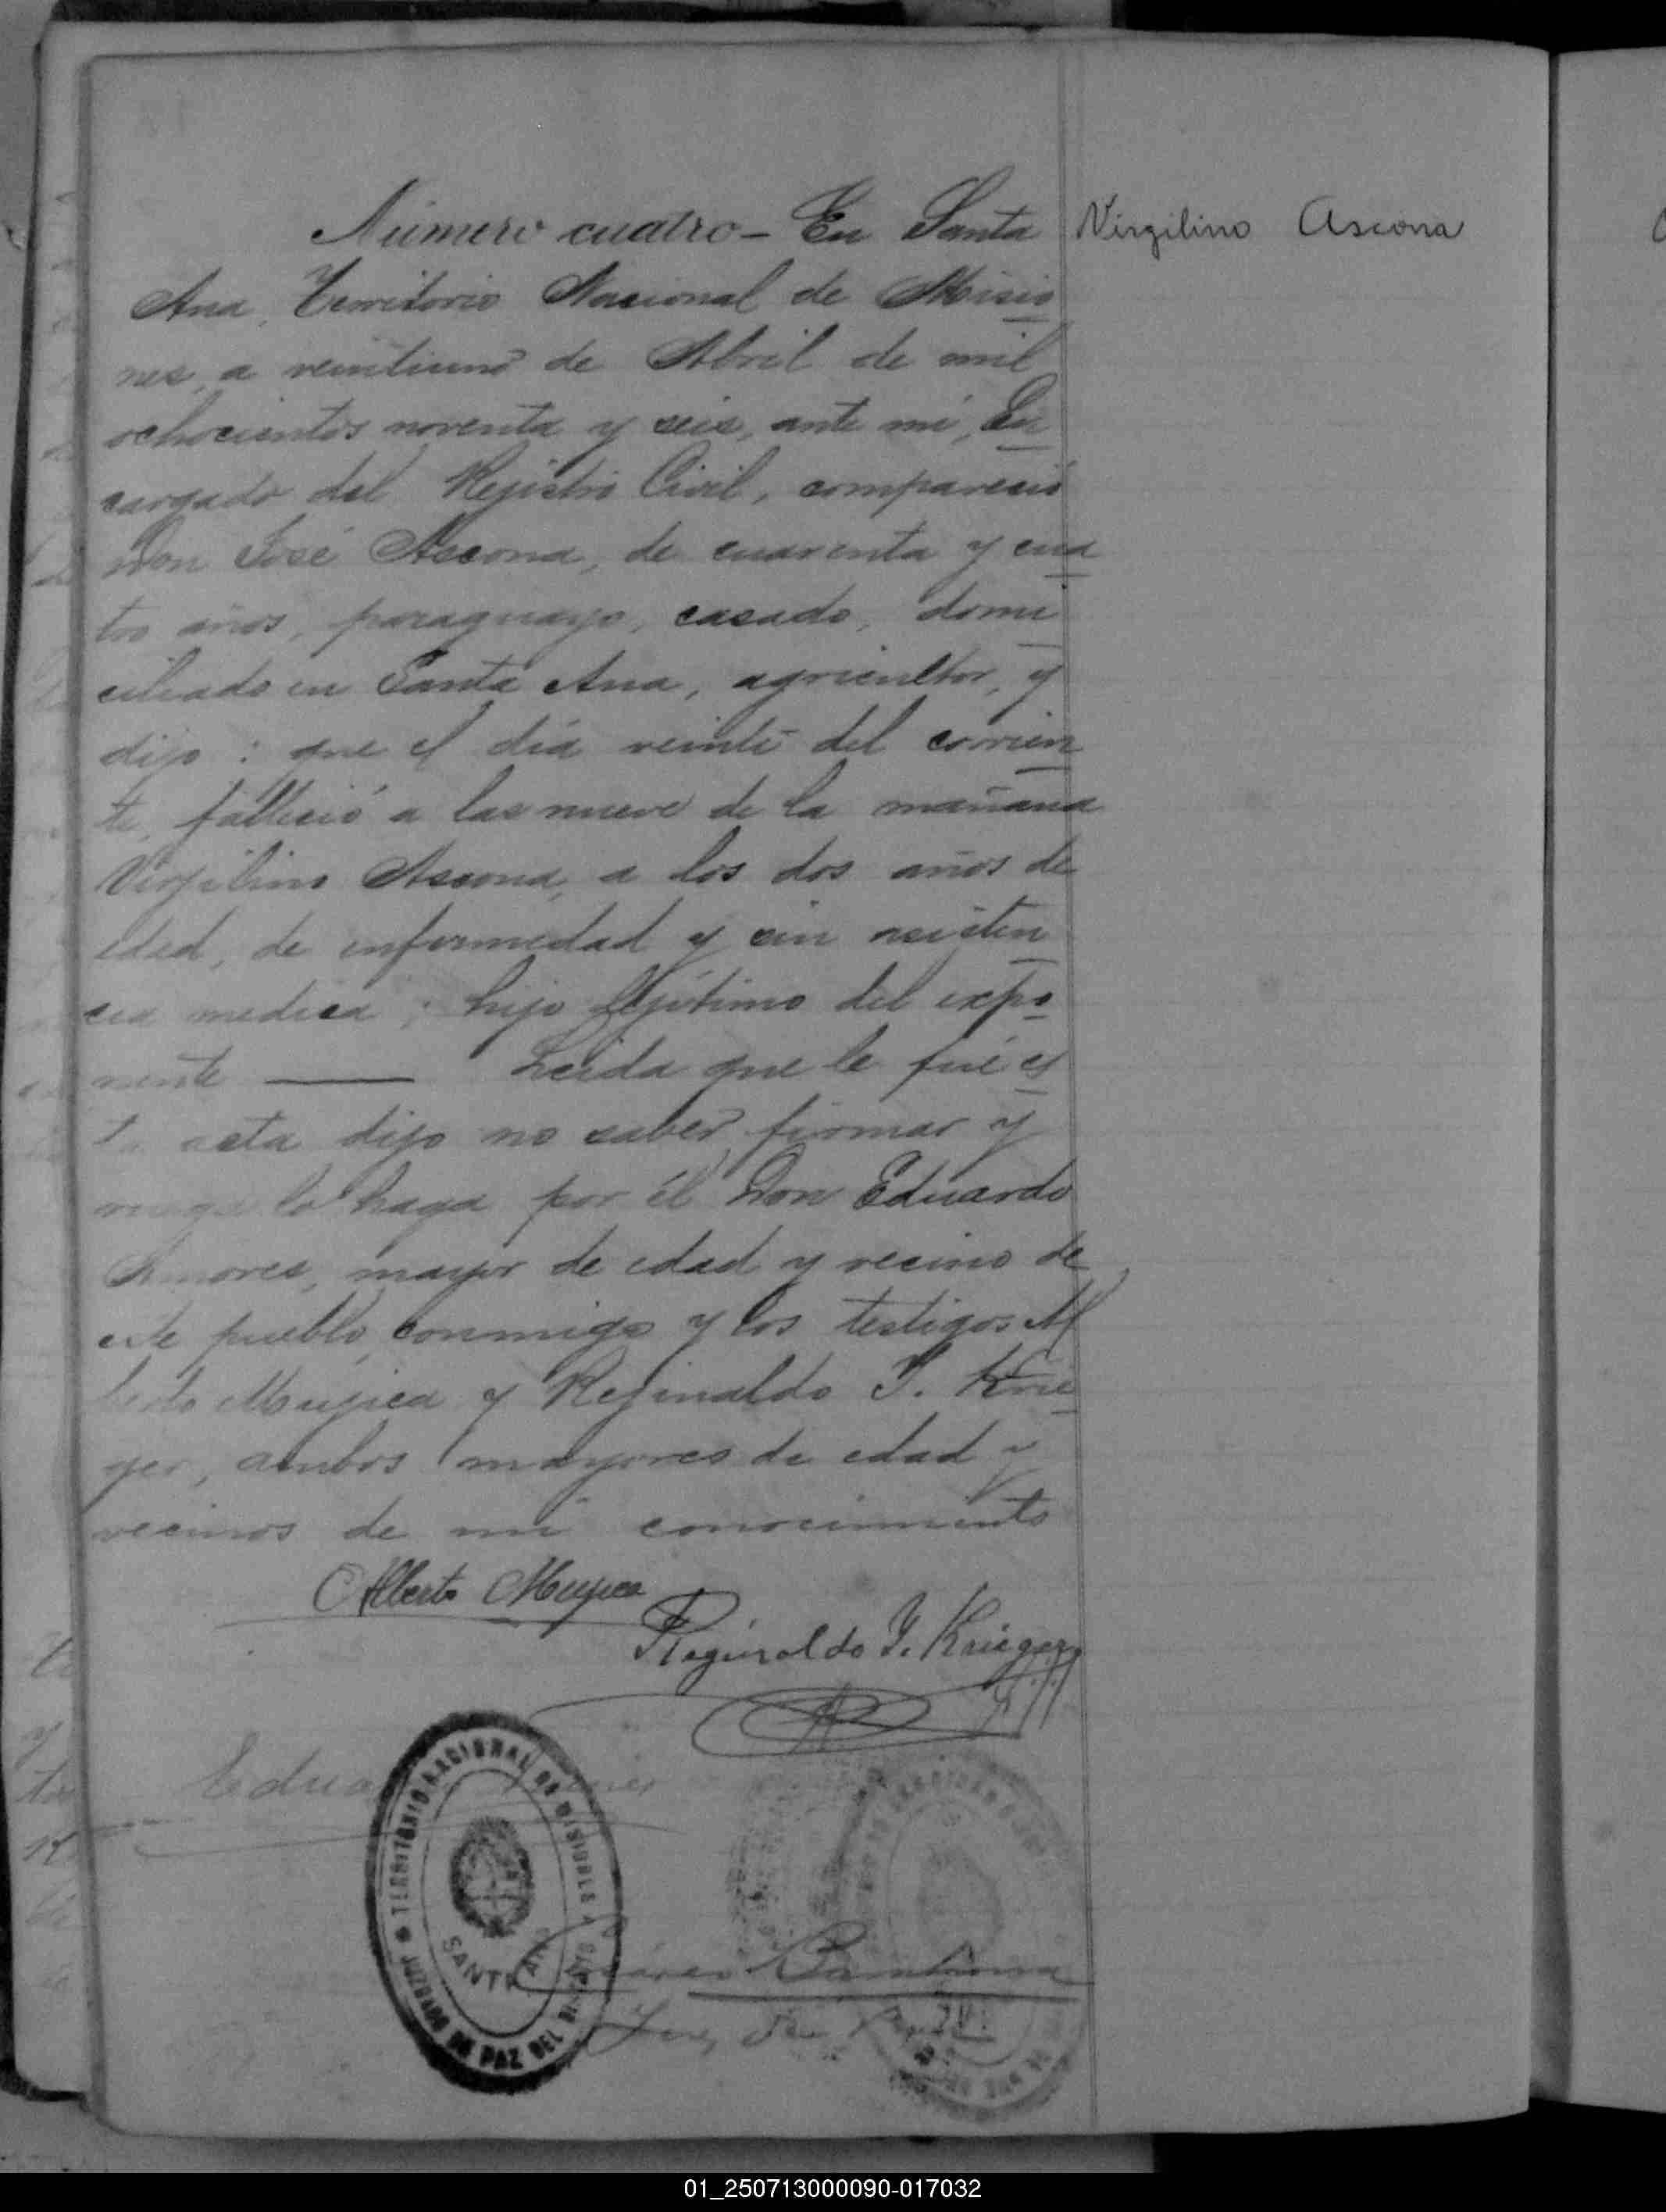 Número cuatro - En Santa
Virgilino Ascona
Ana, Territorio Nacional de Misio
nes, a veintiuno de Abril de mil
ochocientos noventa y seis, ante mí, En
cargado del Rejistro Civil, compareció
Don José Ascona, de cuarenta y cua
tro años, paraguayo, casado, domi
ciliado en Santa Ana, agricultor, y
dijo: que el día veinte del corrien
te, falleció a las nueve de la mañana
Virjilino Ascona, a los dos años de
edad, de enfermedad y sin asisten
cia medica; hijo lejítimo del expo
nente —— Leida que le fué es
ta acta dijo no saber firmar y
ruega lo haga por él Don Eduardo
mayor de edad y vecino de
este pueblo, conmigo y los testigos Al
berto Mujica y Rejinaldo J. Krie
ger, ambos mayores de edad y
vecinos de mi conocimiento
Alberto Mujica
Reginaldo J. Krieger
TERRITORIO NACIONAL DE MISIONES
SANTA ANA
JUZGADO DE PAZ DEL
Juez de
01_250713000090-017032